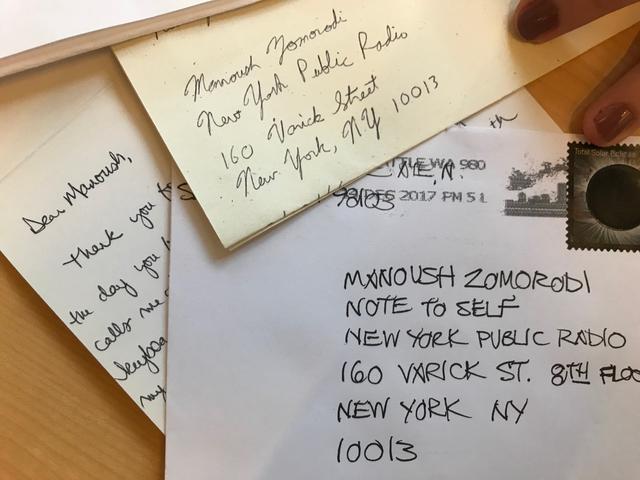 Manoush Zomorodi
New York Public Radio
160 Varick Street
New York, NY 10013
Dear Manoush,
Thank you
the day you
calls me
my
th
N.
98103
TTLE WA 980
DEC 2017 PM 5 L
Total Solar Eclipse
MANOUSH ZOMORODI
NOTE TO SELF
NEW YORK PUBLIC RADIO
160 VARICK ST. 8TH FLOO
NEW YORK NY
10013